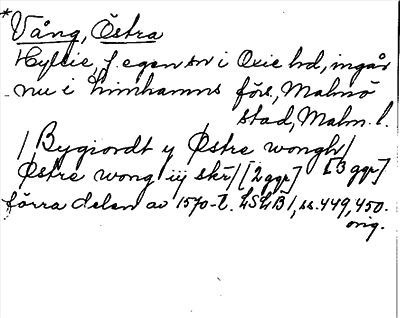 * Vång, Östra
Hyllie, f. egen sn i Oxie hd, ingår
nu i Limhamns förs, Malmö
stad, Malm. l.
/ Bygiordt y Østre wongh/
Østre wong iij skr/ [2 ggr] [3 ggr]
förra delen av 1570-t. LSLB1, ss. 449, 450.
orig.